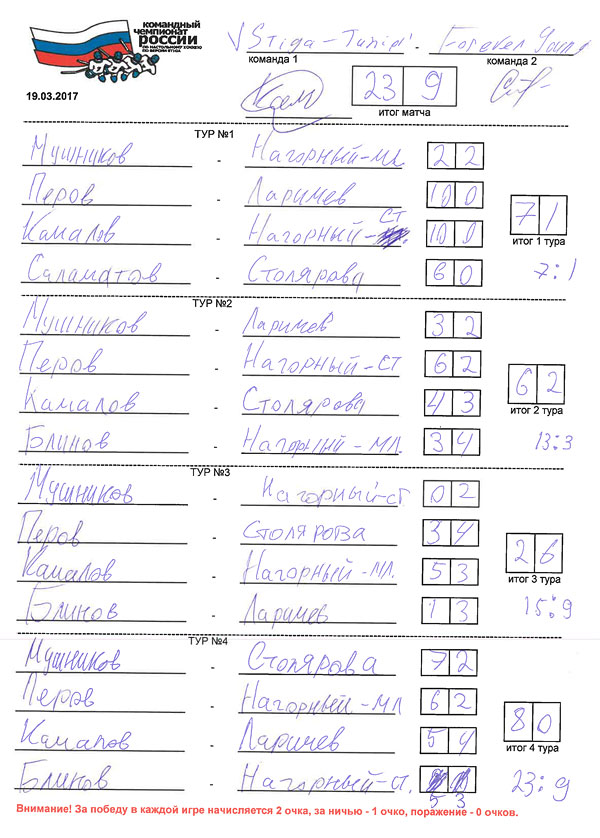 КОМАНДНЫЙ
ЧЕМПИОНАТ
РОССИИ
ПО НАСТОЛЬНОМУ ХОККЕЮ
ПО ВЕРСИИ STIGA
VStiga-Tunip'. - Forever Young
команда 1 команда 2
19.03.2017
23 9
итог матча
ТУР №1
Мушников - Нагорный-мл. 2 2
Перов - Ларичев 10 0
Камалов - Нагорный-СТ 10 0
71
итог 1 тура
Саламатов - Столярова 6 0
7:1
ТУР №2
Мушников - Ларичев 3 2
Перов - Нагорный-СТ 6 2
62
Камалов - Столярова 4 3
итог 2 тура
Блинов - Нагорный-мл. 3 4
13:3
ТУР №3
Мушников - Нагорный-ст 0 2
Перов - Столярова 3 4
26
Камалов - Нагорный-мл. 5 3
итог 3 тура
Блинов - Ларичев 1 3
15:9
ТУР №4
Мушников - Столярова 7 2
Перов - Нагорный-мл 6 2
Камалов - Ларичев 5 4
80
итог 4 тура
Блинов - Нагорный-ст. 5 3
23:9
Внимание! За победу в каждой игре начисляется 2 очка, за ничью - 1 очко, поражение - 0 очков.